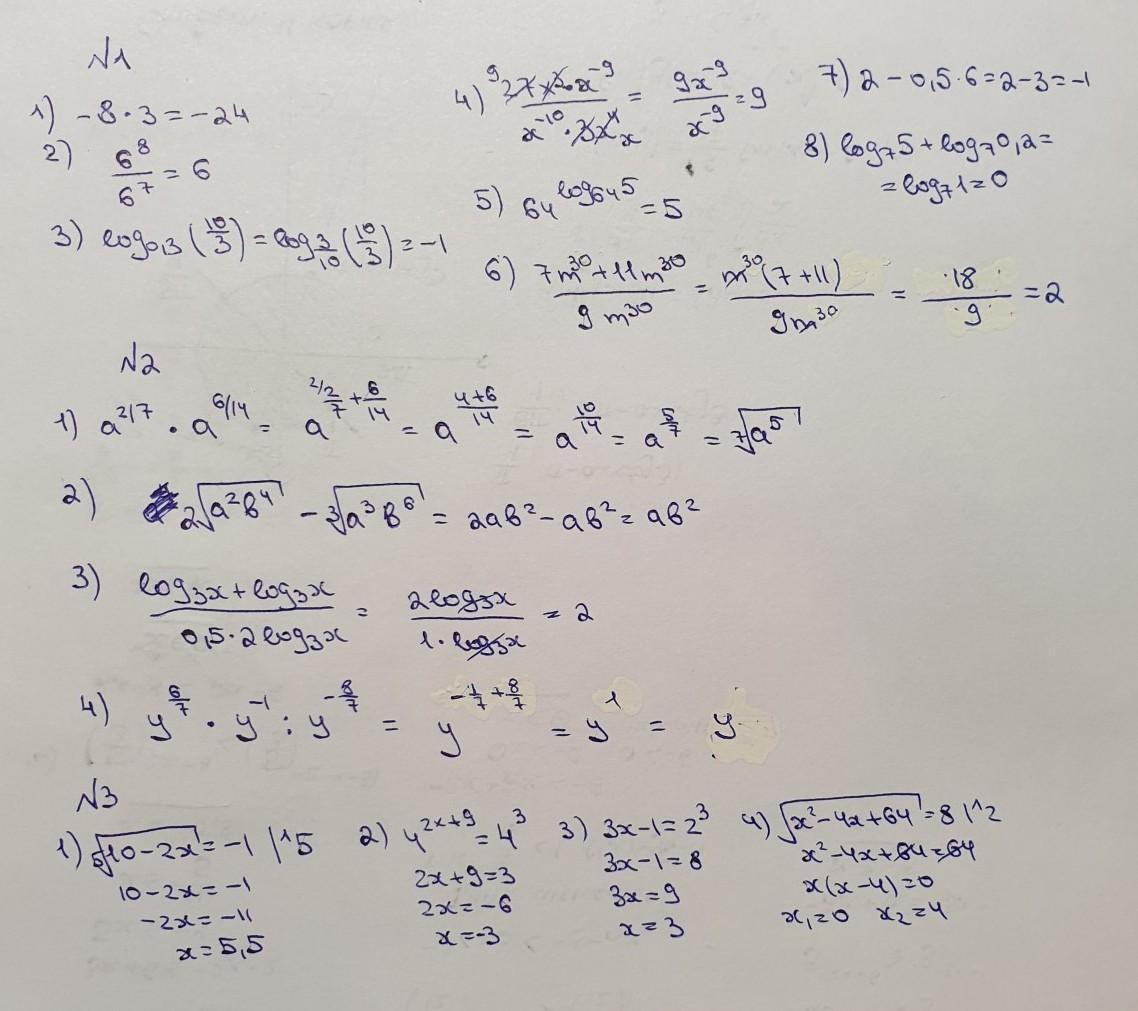 №1
1) -8·3=-24
2) 6^8/6^7 = 6
3) log_0,3 (10/3) = log_3/10 (10/3) = -1
4) ^9 27x^2·x^-9 / x^-10·3x^4 x = 9x^-9/x^-9 = 9
5) 64^log_64 5 = 5
6) 7m^30+11m^30 / 9m^30 = m^30(7+11) / 9m^30 = 18/9 = 2
7) 2-0,5·6=2-3=-1
8) log_7 5+log_7 0,2=
=log_7 1=0
№2
1) a^2/7 · a^6/14 = a^(2/ 2/7 + 6/14) = a^(4+6)/14 = a^10/14 = a^5/7 = ⁷√a^5
2) 2√a^2b^4 - ³√a^3b^6 = 2ab^2-ab^2= ab^2
3) log_3 x+log_3 x / 0,5·2log_3 x = 2log_3 x / 1·log_3 x = 2
4) y^6/7 · y^-1 : y^-8/7 = y^(-1/7+8/7) = y^1 = y
№3
1) ⁵√10-2x = -1 |^5
10-2x=-1
-2x=-11
x=5,5
2) 4^2x+9 = 4^3
2x+9=3
2x=-6
x=-3
3) 3x-1=2^3
3x-1=8
3x=9
x=3
4) √x^2-4x+64 = 8 |^2
x^2-4x+64=64
x(x-4)=0
x_1=0 x_2=4